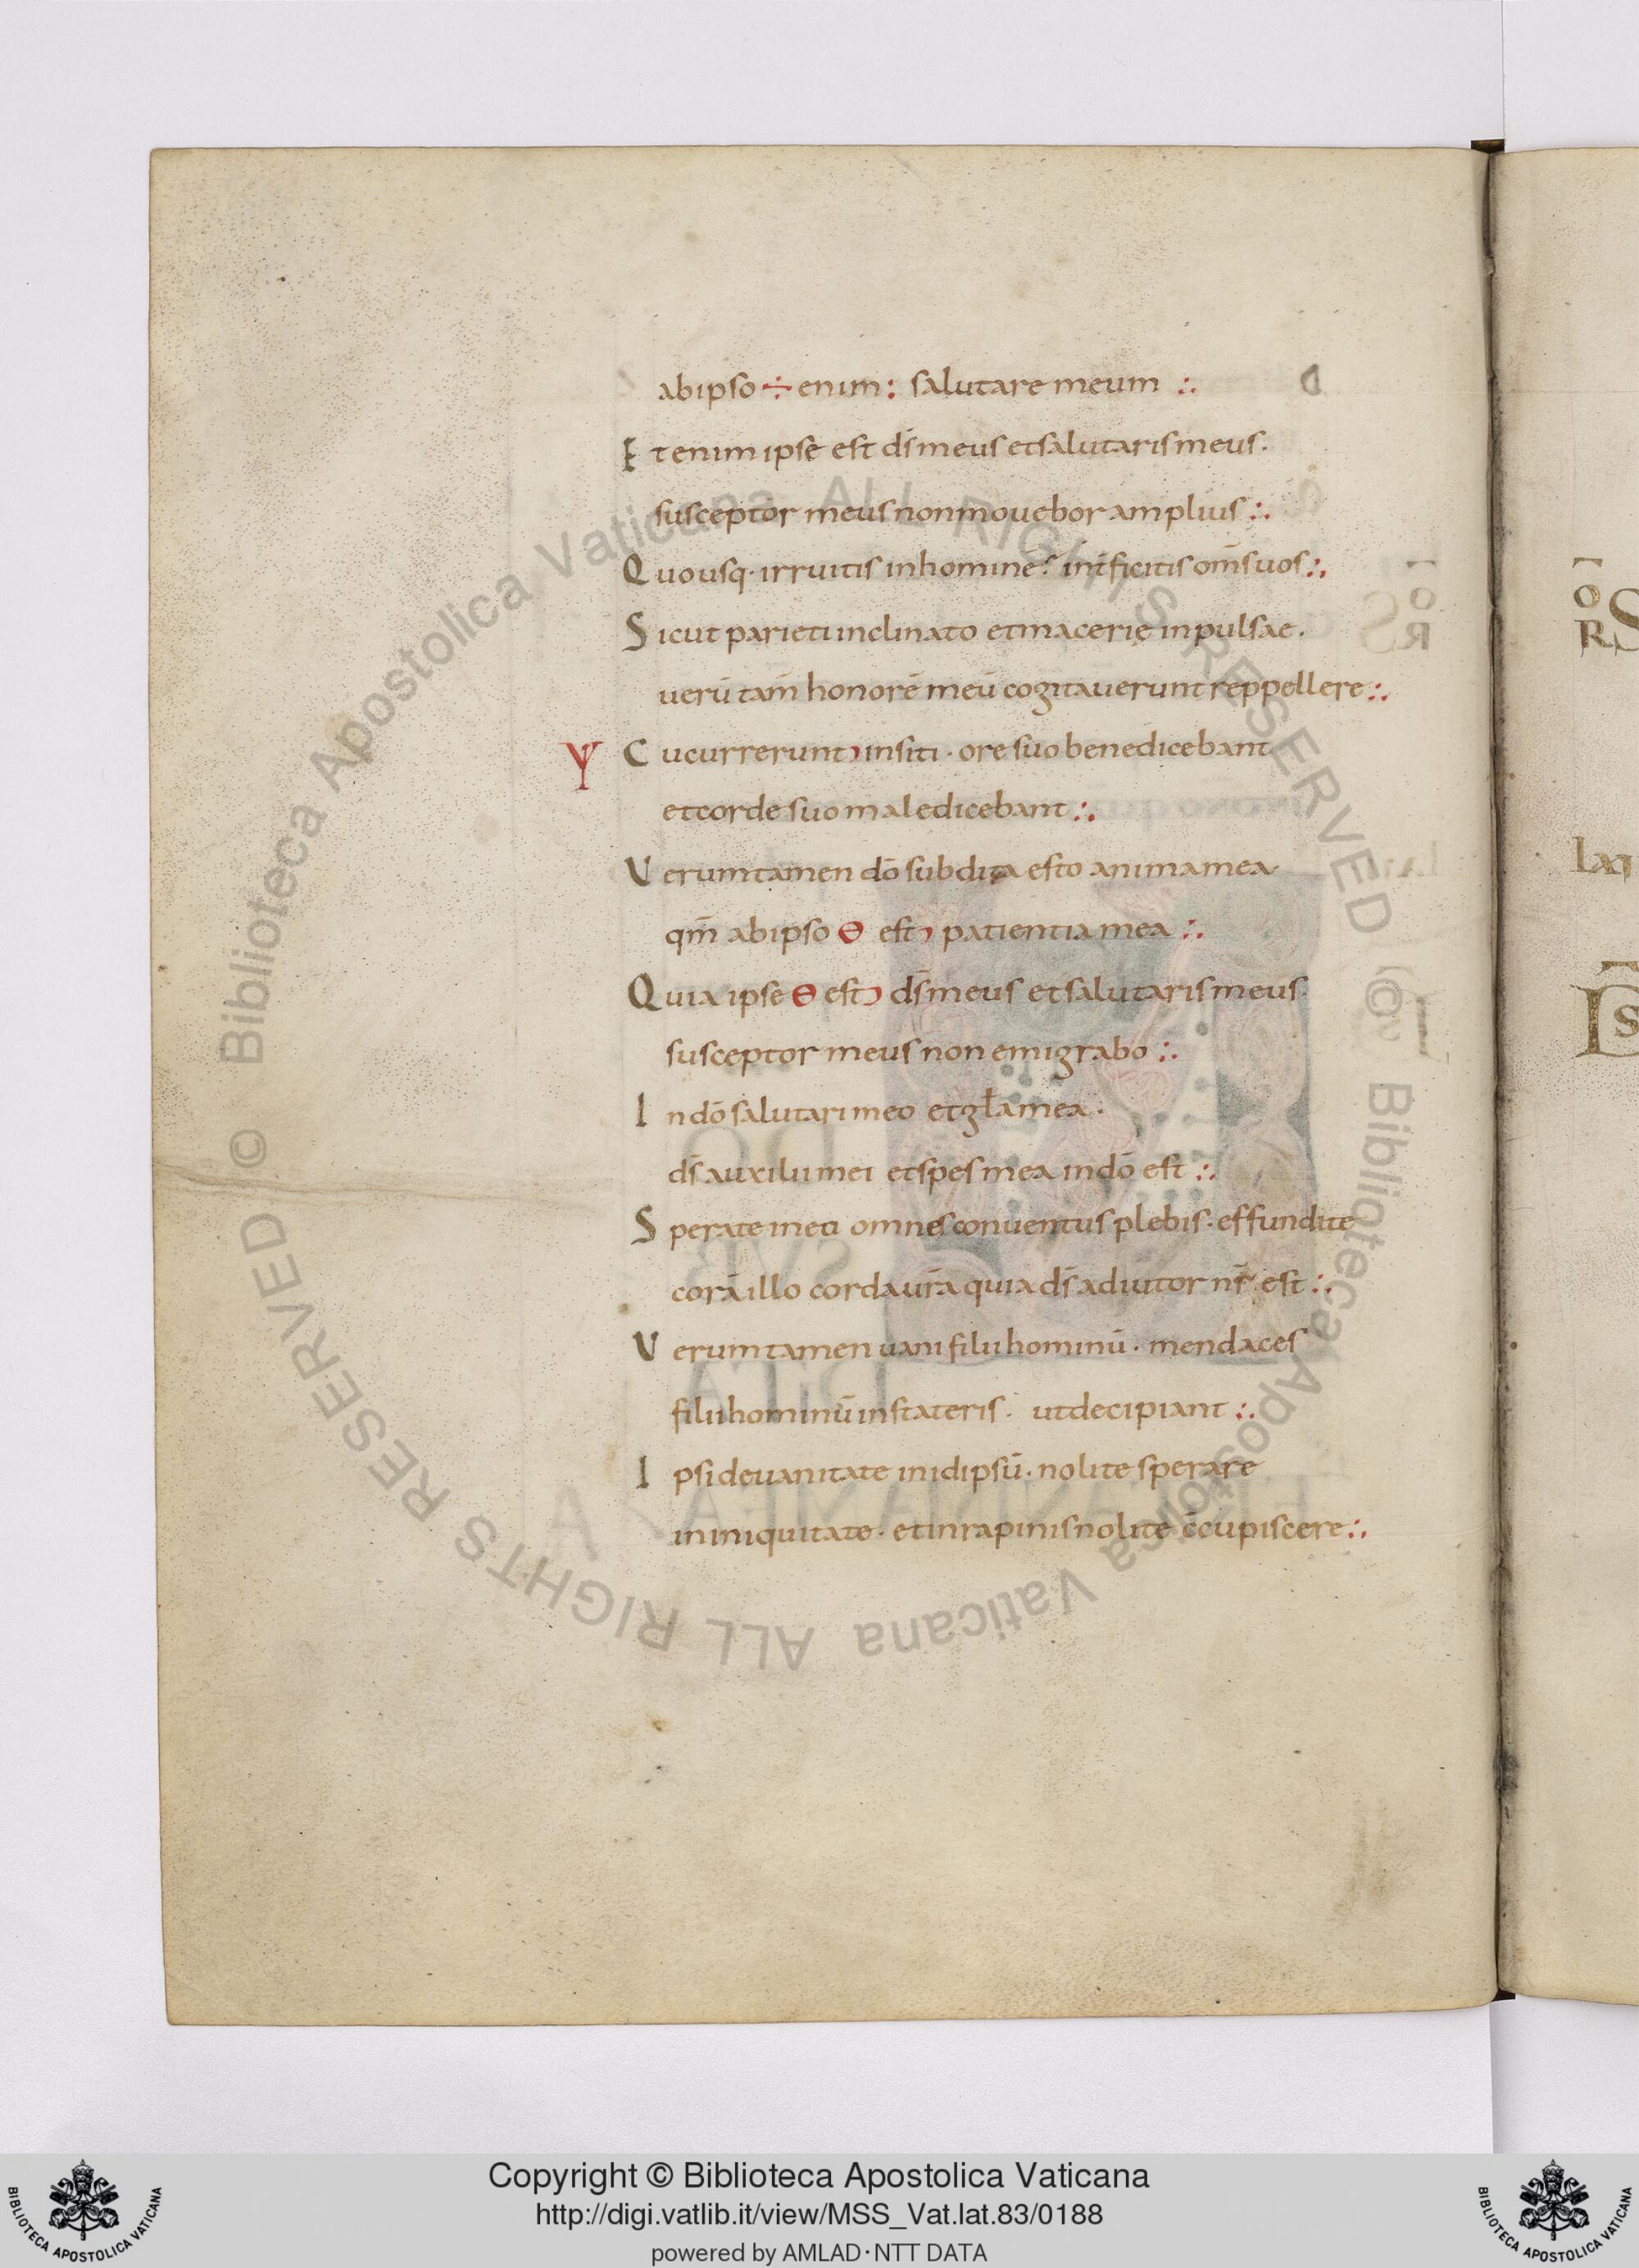 abipso ÷ enim : salutare meum :.
E tenim ipse est dſ̄ meus et salutaris meus.
susceptor meus non mouebor amplius :.
Q uousq· irruitis in hominē? int̄ficitis om̄s uos :.
S icut parieti inclinato et macerię inpulsae.
uerū tam̄ honorē meū cogitauerunt reppellere :.
Y C ucurrerunt insiti · ore suo benedicebant
et corde suo maledicebant :.
V erumtamen dō subdita esto anima mea
qm̄ abipso Θ est patientia mea :.
Q uia ipse Θ est ds̄ meus et salutaris meus.
susceptor meus non emigrabo :.
I n dō salutari meo et gl̄a mea ·
ds̄ auxilii mei et spes mea in dō est :.
S perate in eū omnes conuentus plebis · effundite
corā illo corda ur̄a quia ds̄ adiutor nr̄ est :.
V erumtamen uani filii hominū · mendaces
filii hominū in stateris · ut decipiant :.
I psi de uanitate in idipsū · nolite sperare
in iniquitate · et in rapinis nolite c̄cupiscere :.
Copyright © Biblioteca Apostolica Vaticana
http://digi.vatlib.it/view/MSS_Vat.lat.83/0188
powered by AMLAD·NTT DATA
BIBLIOTECA APOSTOLICA VATICANA
BIBLIOTECA APOSTOLICA VATICANA
Biblioteca Apostolica Vaticana ALL RIGHTS RESERVED ©
Biblioteca Apostolica Vaticana ALL RIGHTS RESERVED ©